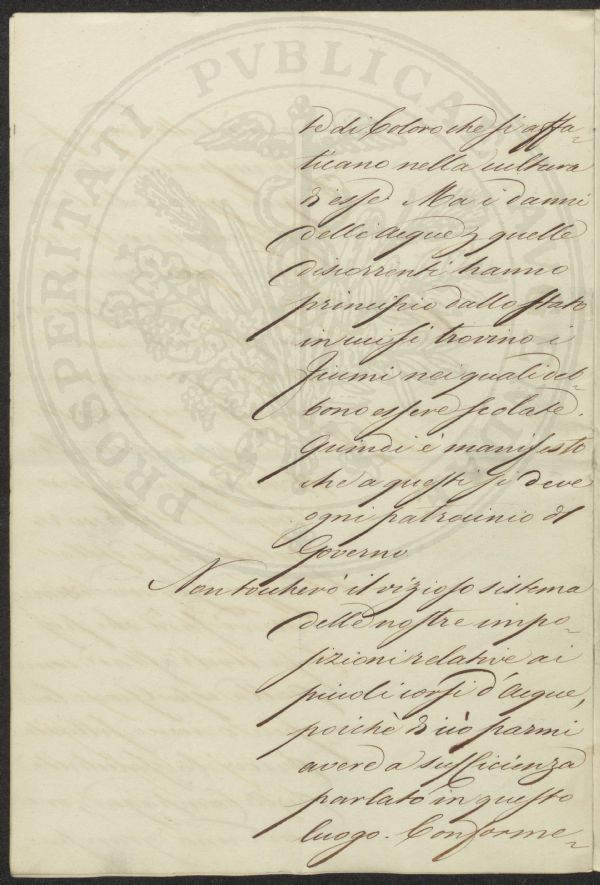 PROSPERITATI PVBLICAE
te di Coloro che si affa=
ticano nella cultura
d'esse. Ma i danni
delle Acque, e quelle
discorrenti hanno
principio dallo stato
in cui si trovino i
fiumi nei quali deb=
bono essere scolate.
Quindi è manifesto
che a questi si deve
ogni patrocinio di
Governo.
Non toccherò il vizioso sistema
delle nostre impo=
sizioni relative ai
piccoli corsi d'Acque,
poichè di ciò parmi
avere a sufficienza
parlato in questo
luogo. Conforme=